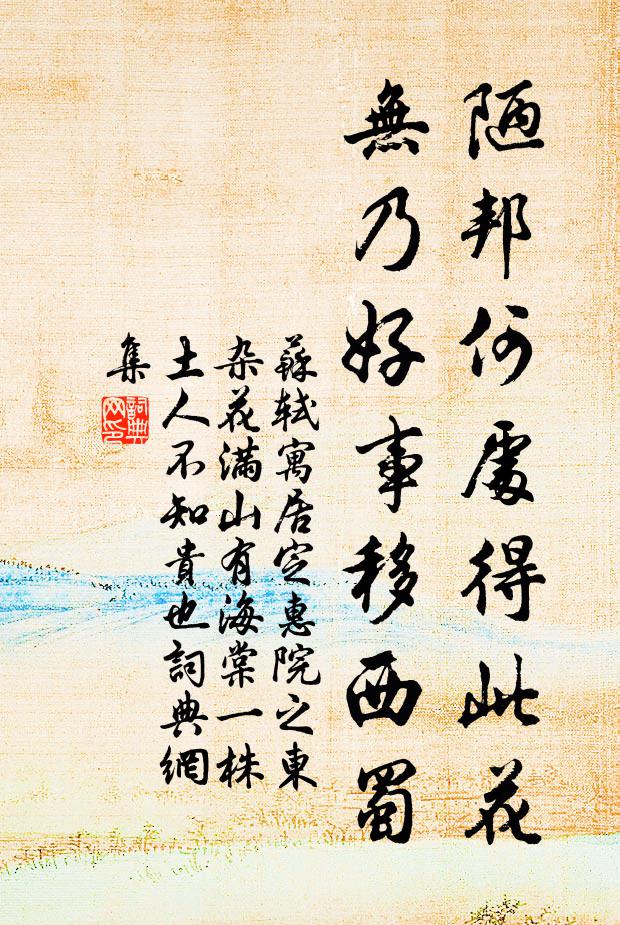 陋邦何處得此花
無乃好事移西蜀
蘇軾寓居定惠院之東
杂花滿山有海棠一株
土人不知貴也詞典網
集
詞典
网印